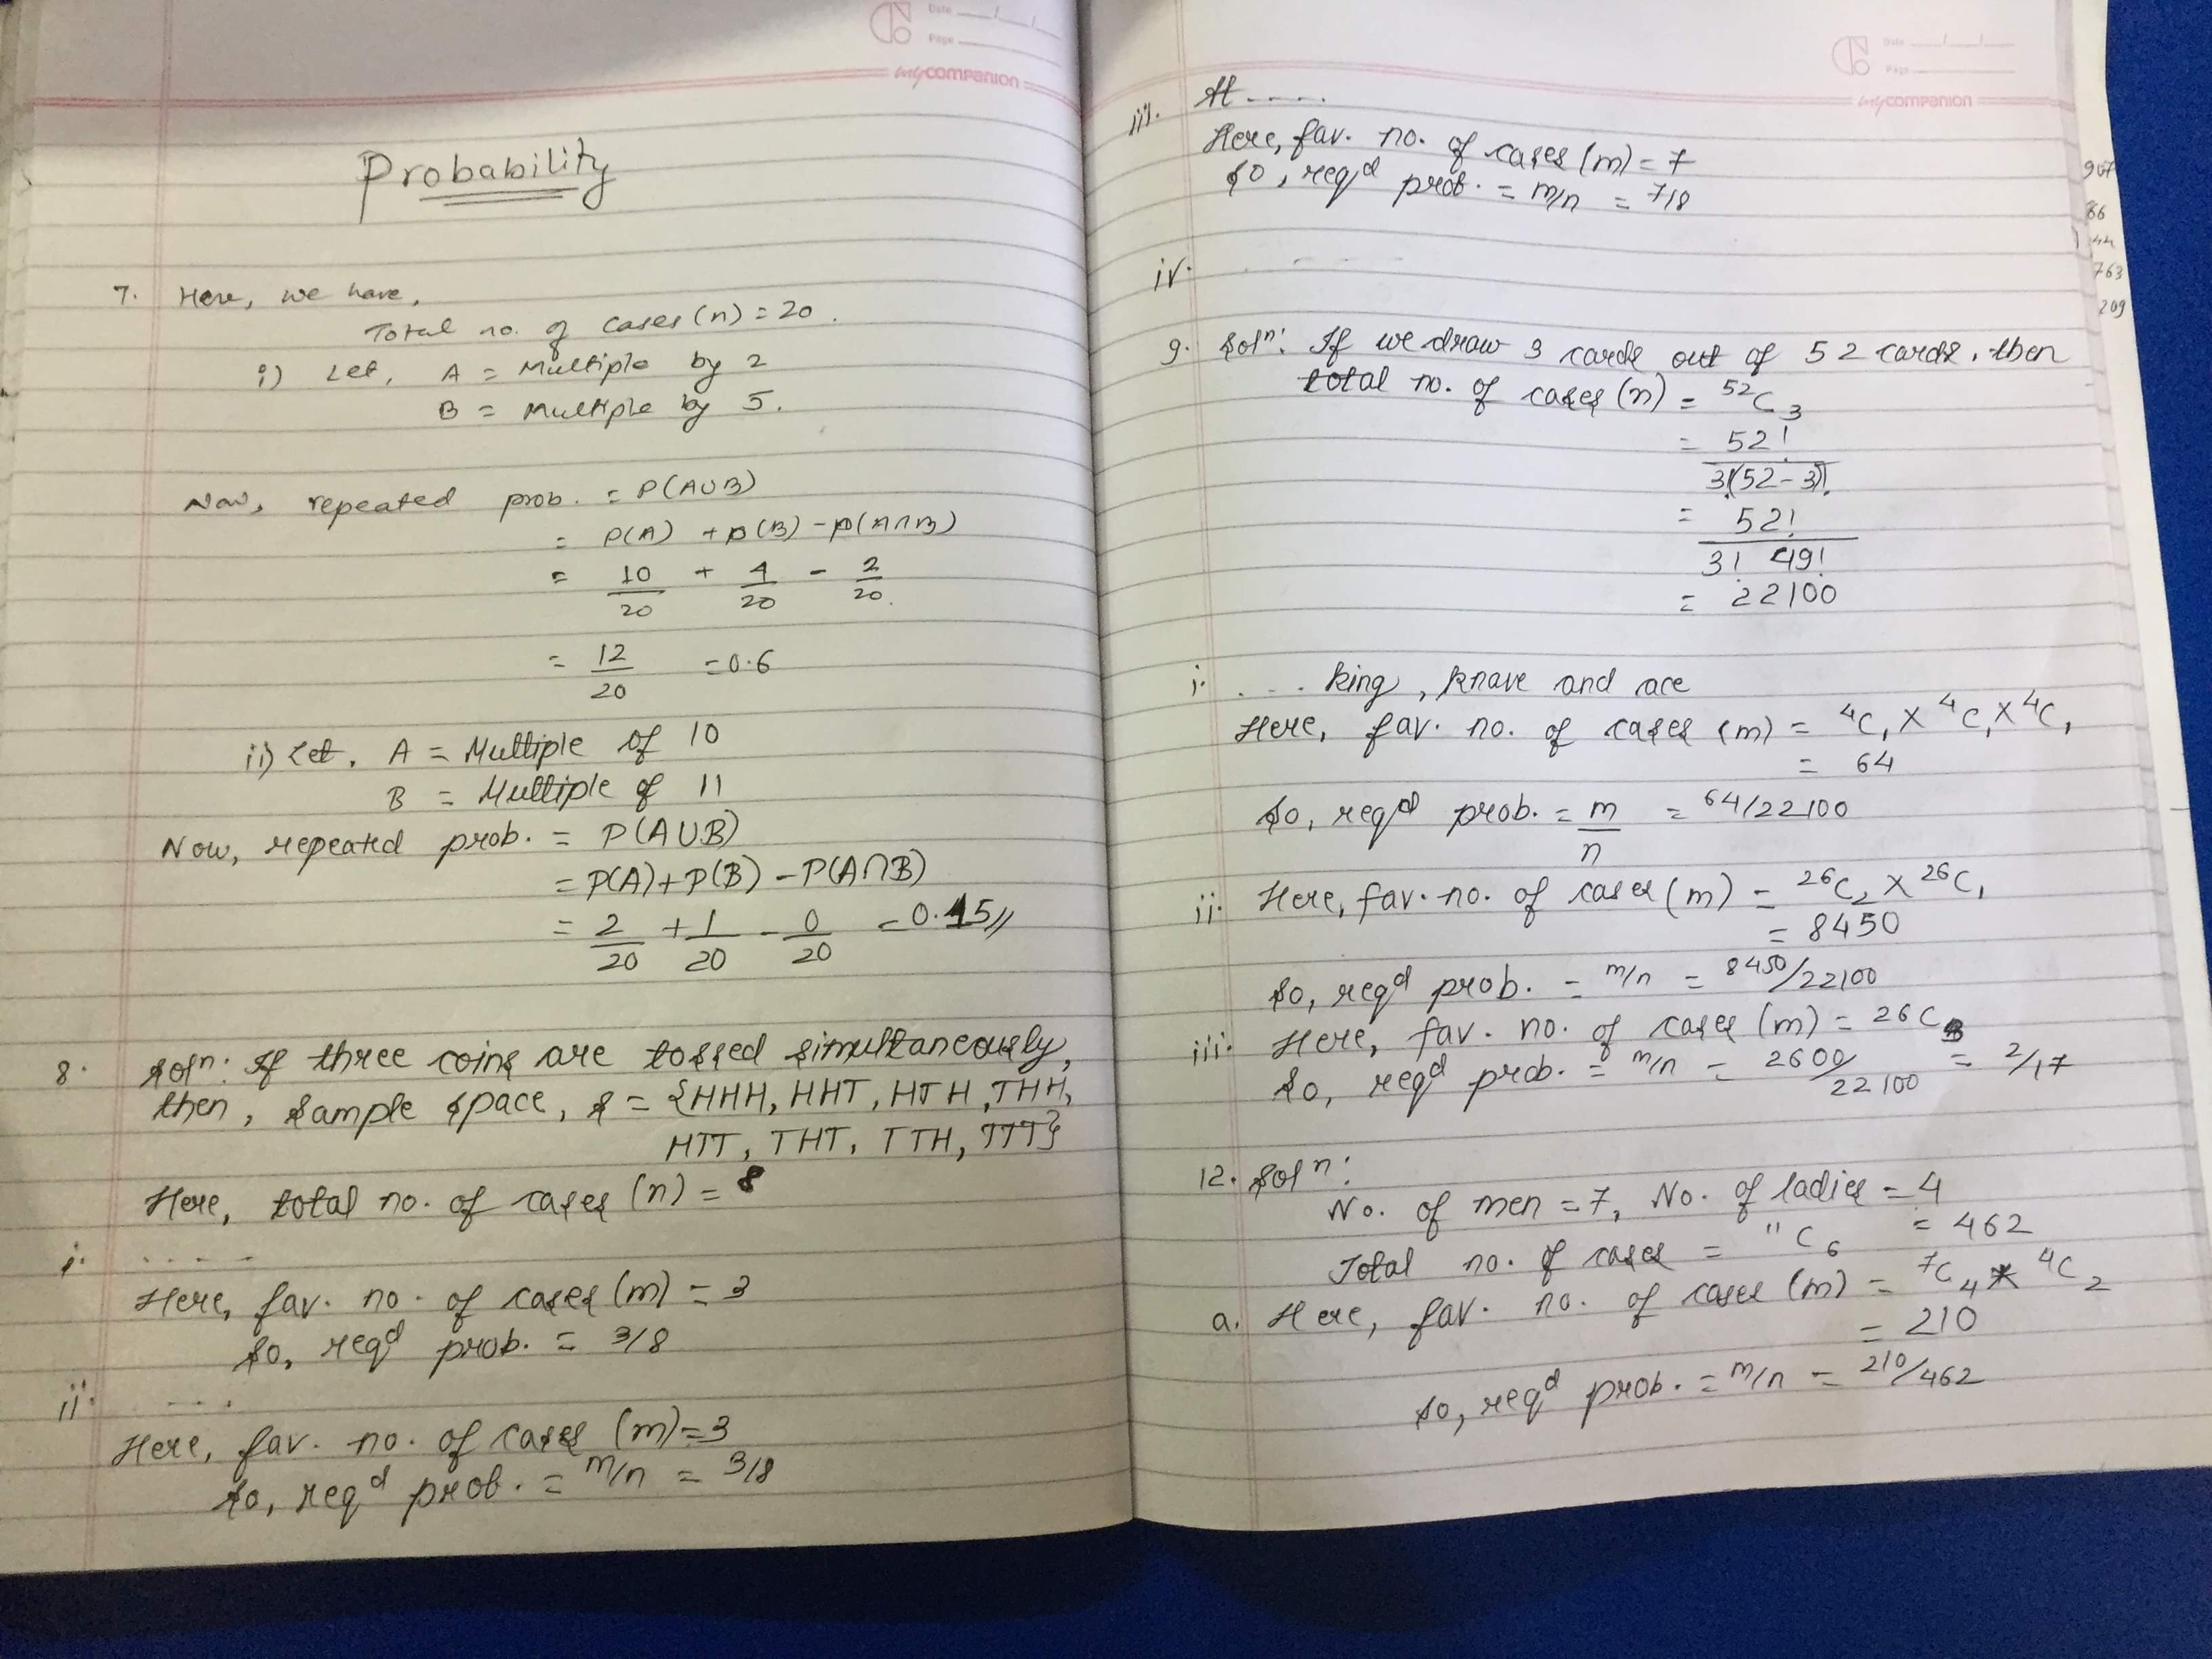 Date
Page
mycompanion
Probability
7. Here, we have,
Total no. of cases (n) = 20.
i) Let, A = Multiple by 2
B = Multiple by 5.
Now, repeated prob. = P(A∪B)
= P(A) + P(B) - P(A∩B)
= 10/20 + 4/20 - 2/20.
= 12/20 = 0.6
ii) Let, A = Multiple of 10
B = Multiple of 11
Now, repeated prob. = P(A∪B)
= P(A) + P(B) - P(A∩B)
= 2/20 + 1/20 - 0/20 = 0.15//
8. Solⁿ: If three coins are tossed simultaneously,
then, sample space, S = {HHH, HHT, HTH, THH,
HTT, THT, TTH, TTT}
Here, total no. of cases (n) = 8
i. ....
Here, fav. no. of cases (m) = 3
So, reqᵈ prob. = 3/8
ii. ....
Here, fav. no. of cases (m) = 3
So, reqᵈ prob. = m/n = 3/8
Date
Page
mycompanion
iii. At ....
Here, fav. no. of cases (m) = 7
So, reqᵈ prob. = m/n = 7/8
iv. .....
9. Solⁿ: If we draw 3 cards out of 52 cards, then
total no. of cases (n) = ⁵²C₃
= 52!/3!(52-3)!
= 52!/3! 49!
= 22100
i. .... king, knave and ace
Here, fav. no. of cases (m) = ⁴C₁ X ⁴C₁ X ⁴C₁
= 64
So, reqᵈ prob. = m/n = 64/22100
ii. Here, fav. no. of cases (m) = ²⁶C₂ X ²⁶C₁
= 8450
So, reqᵈ prob. = m/n = 8450/22100
iii. Here, fav. no. of cases (m) = 26C₃
So, reqᵈ prob. = m/n = 2600/22100 = 2/17
12. Solⁿ:
No. of men = 7, No. of ladies = 4
Total no. of cases = ¹¹C₆ = 462
a. Here, fav. no. of cases (m) = ⁷C₄ * ⁴C₂
= 210
So, reqᵈ prob. = m/n = 210/462
763
209